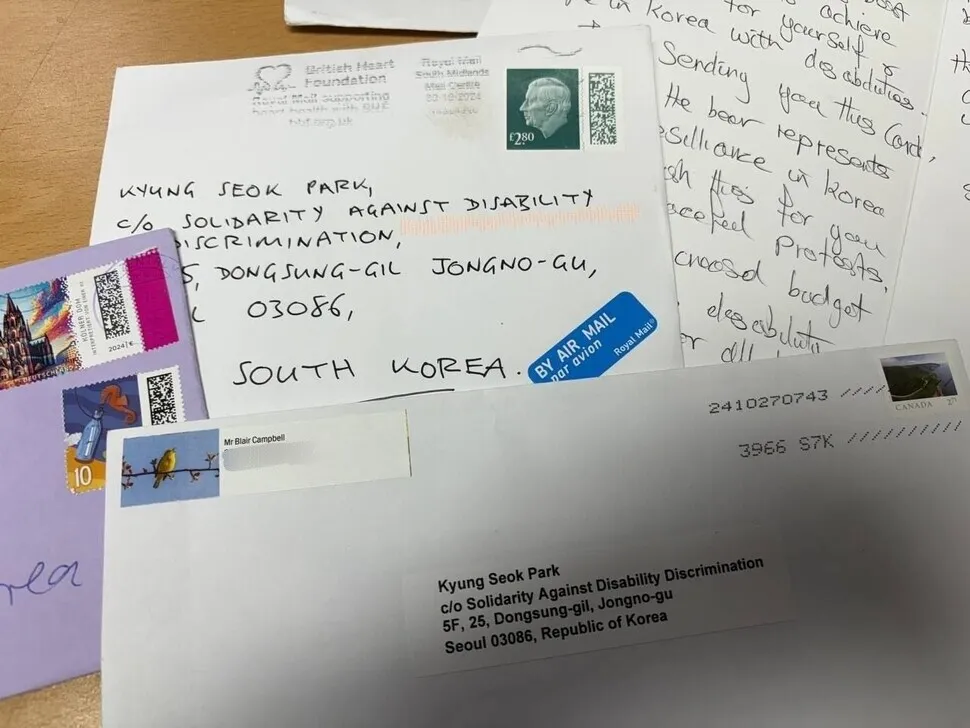 British Heart
Foundation
Royal Mail supporting
heart health with BHF
bhf.org.uk
Royal Mail
South Midlands
Mail Centre
£2.80
KYUNG SEOK PARK,
C/O SOLIDARITY AGAINST DISABILITY
DISCRIMINATION,
5, DONGSUNG-GIL JONGNO-GU,
L 03086,
SOUTH KOREA.
BY AIR MAIL
par avion
Royal Mail
achieve
in Korea for yourself &
with disabilities.
Sending you this Card,
the bear represents
resilliance in Korea
this for you
Protests,
budget
disability
KÖLNER DOM
2024
DEUTSCHLAND
10
rea
Mr Blair Campbell
2410270743
3966 S7K
CANADA
Kyung Seok Park
c/o Solidarity Against Disability Discrimination
5F, 25, Dongsung-gil, Jongno-gu
Seoul 03086, Republic of Korea